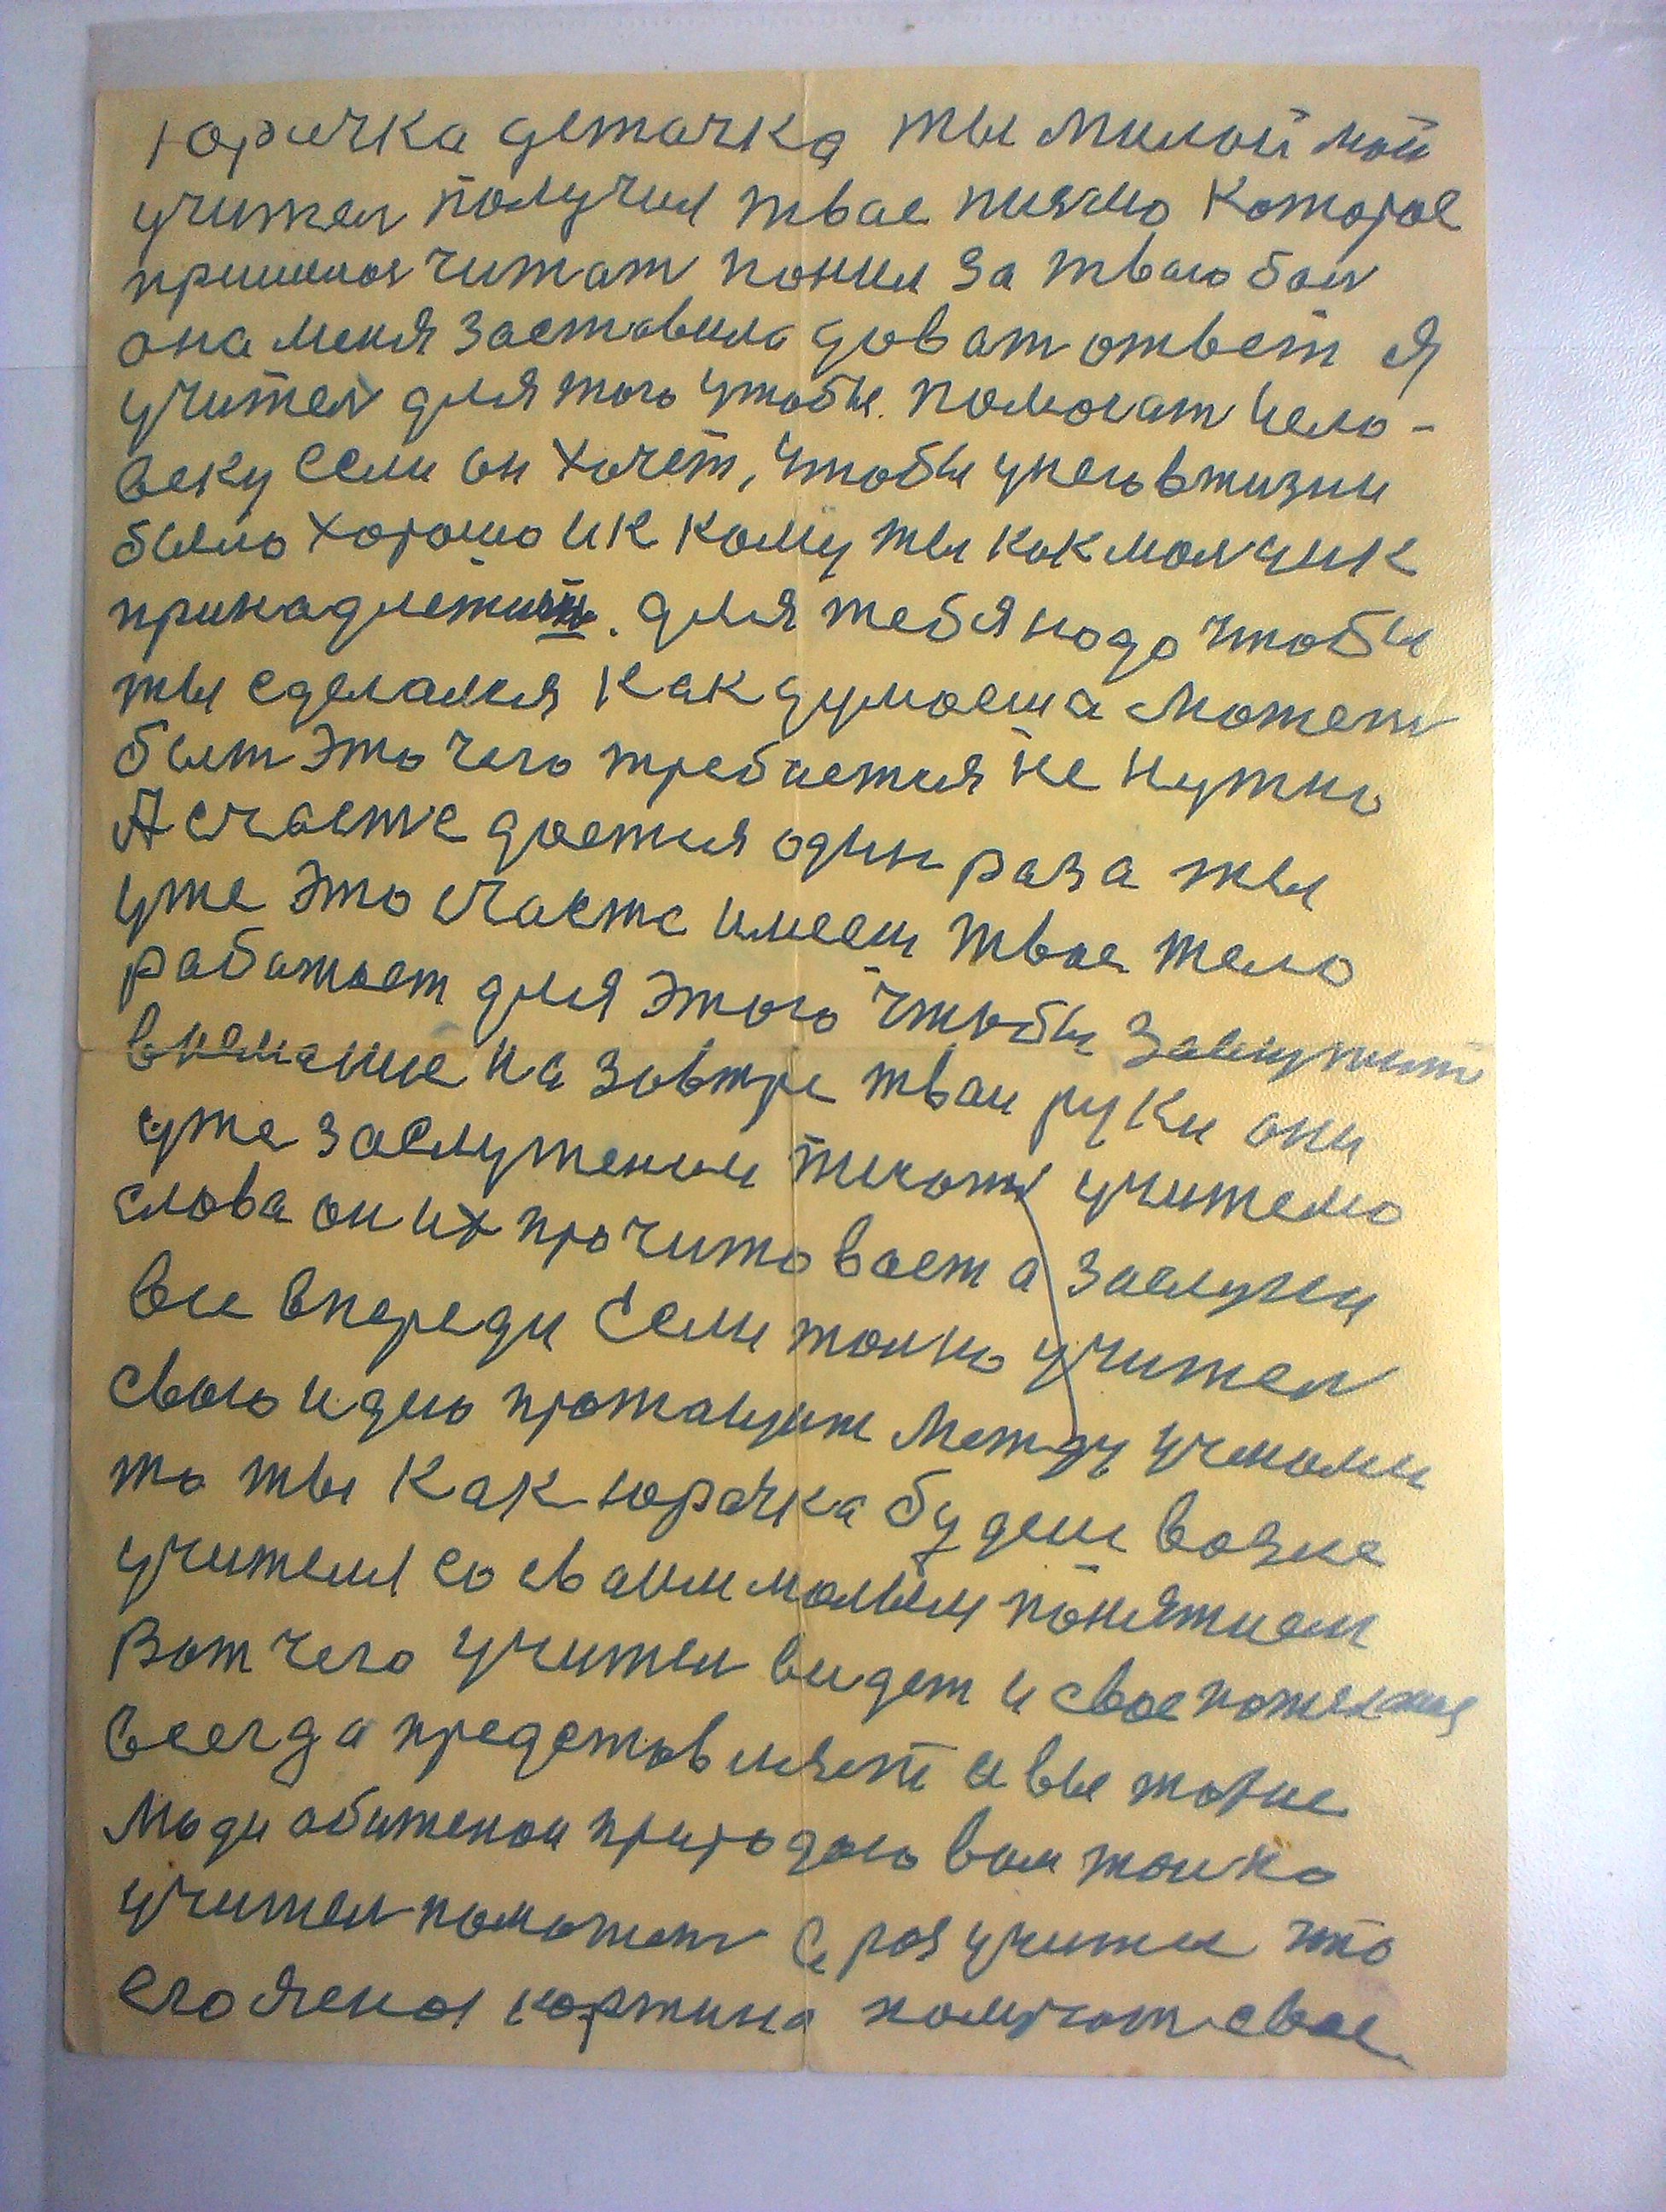 Юричка деточка ты милой мой
учител получил твае писмо которое
пришлос читат понил за тваю бол
она меня заставила доват ответ я
учител для того чтобы помогат чело-
веку если он хочет, чтобы у нево в жизни
было хорошо и к кому ты как молчик
принадлежиш. для тебя надо чтобы
ты сделался как думоеш а может
быт это чего требуется не нужно
А счастье доется один раз а ты
уже это счасте имееш твое тело
работает для этого чтобы заслужит
внемание на зовтре тваи руки они
уже заслужении писат учителю
слова он их прочитовает а заслуги
все впереди Если толко учител
свою идею протащит между учеными
то ты как Юрачка будеш возле
учителя со сваим малым понятием
Вот чего учител видет и свое
всегда предстовляет а вы такие
люди обижении природою вам толко
учител поможет
его картина свае